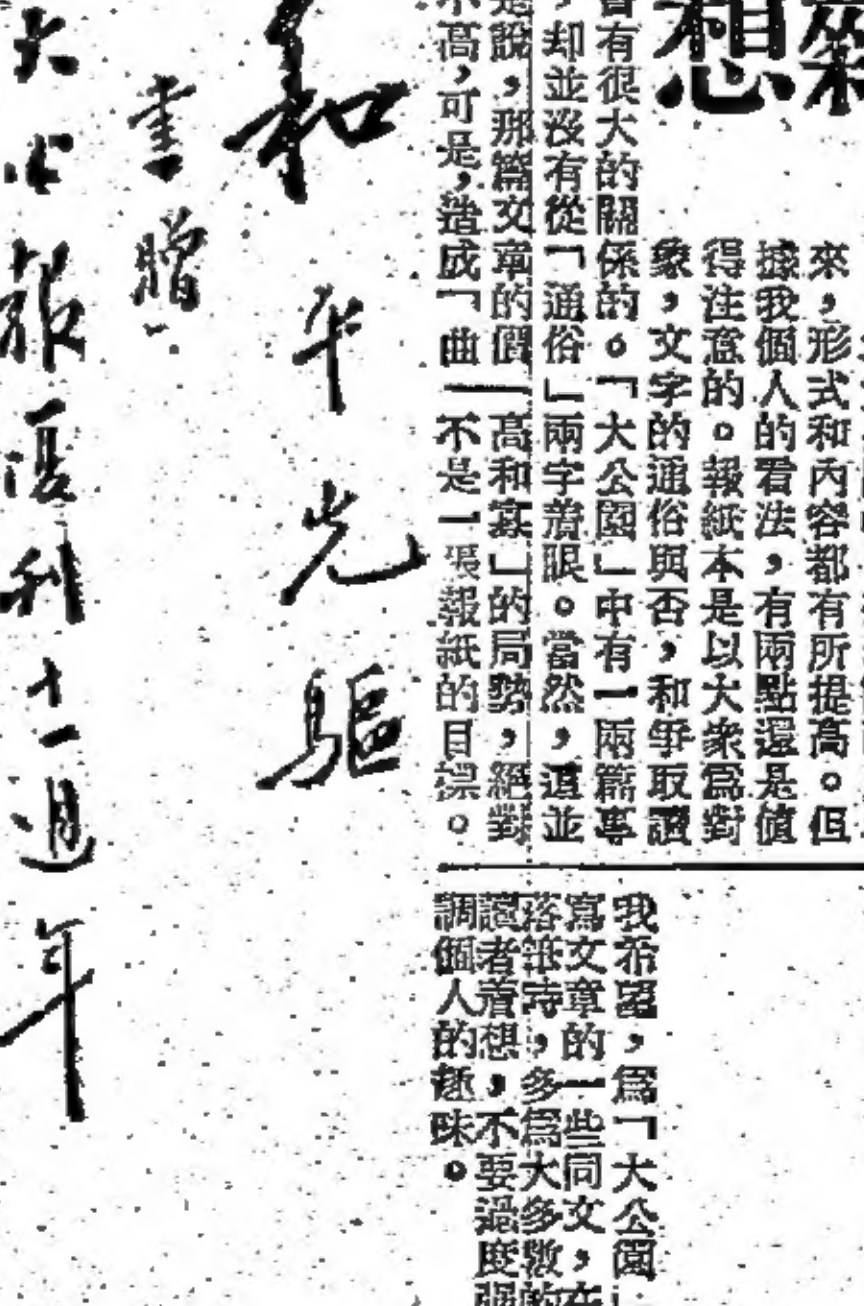 想
來，形式和內容都有所提高。但
據我個人的看法，有兩點還是值
得注意的。報紙本是以大衆爲對
象，文字的通俗與否，和爭取讀
會有很大的關係的。「大公園」中有一兩篇專
，却並沒有從「通俗」兩字着眼。當然，這並
是說，那篇文章的價 高和寡」的局勢，絕對
不高，可是，造成「曲 不是一張報紙的目標。
我希望，爲「大公園」
寫文章的一些同文，在
落筆時，多爲大多數的
讀者着想，不要過度強
調個人的趣味。
和平光驅
書贈
大公報復刊十一週年